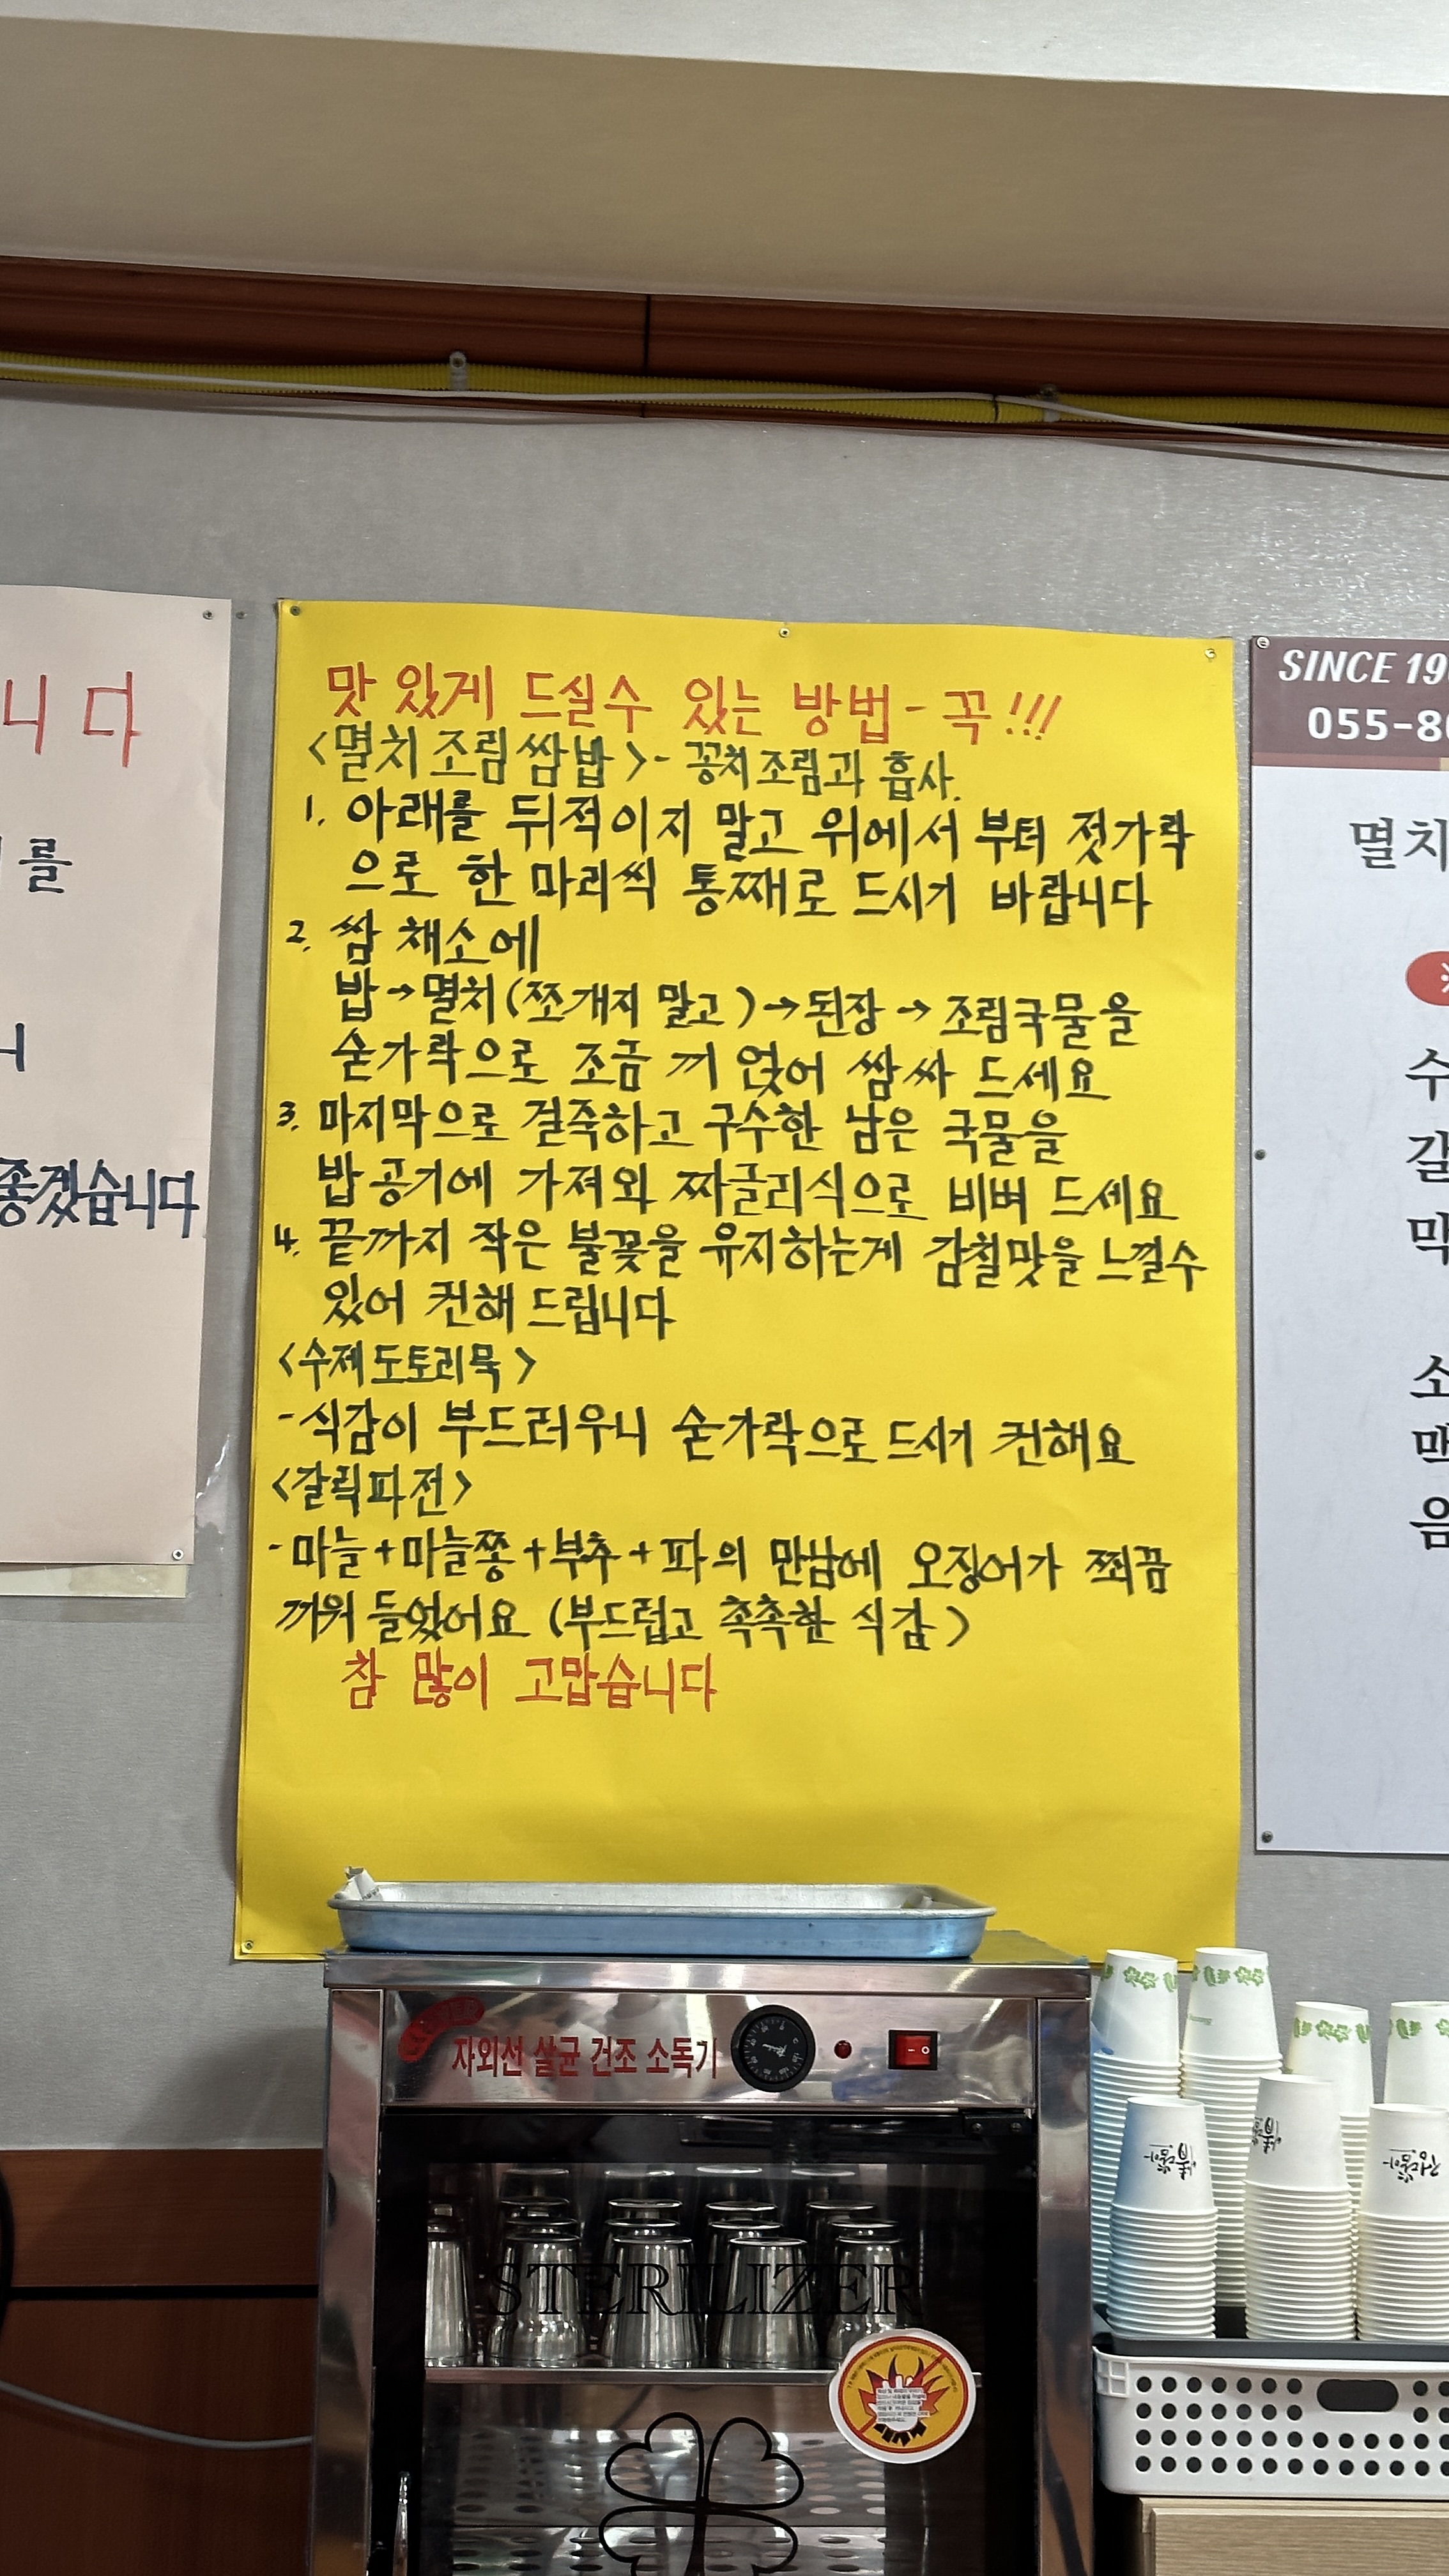 니다
를
니
좋겠습니다
맛 있게 드실수 있는 방법 - 꼭!!!
<멸치조림쌈밥> - 꽁치조림과 흡사.
1. 아래를 뒤적이지 말고 위에서 부터 젓가락
으로 한 마리씩 통째로 드시기 바랍니다
2. 쌈 채소에
밥→멸치(쪼개지 말고)→된장→조림국물을
숟가락으로 조금 끼 얹어 쌈싸 드세요
3. 마지막으로 걸죽하고 구수한 남은 국물을
밥공기에 가져와 짜글리식으로 비벼 드세요
4. 끝까지 작은 불꽃을 유지하는게 감칠맛을 느낄수
있어 컨해드립니다
<수제도토리묵>
- 식감이 부드러우니 숟가락으로 드시기 컨해요
<갈릭파전>
- 마늘+마늘쫑+부추+파의 만남에 오징어가 쬐끔
끼워 들었어요 (부드럽고 촉촉한 식감)
참 많이 고맙습니다
SINCE 19
055-8
멸치
수
갈
먹
소
맥
음
자외선 살균 건조 소독기
STERILIZER